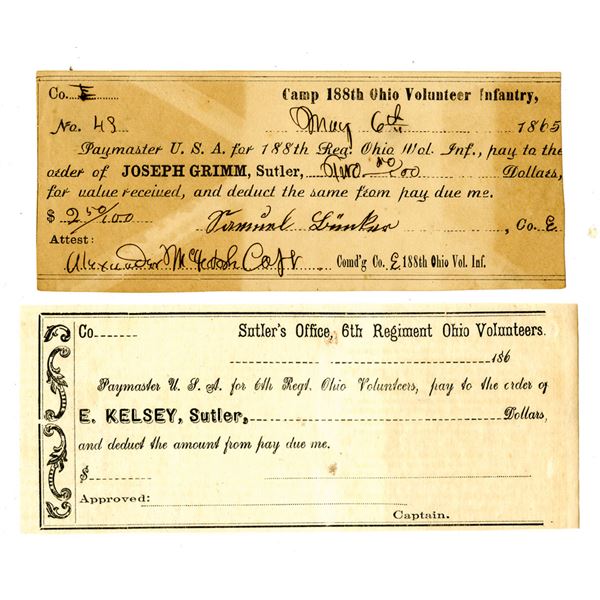 Co. E
Camp 188th Ohio Volunteer Infantry,
No. 43
May 6th 1865
Paymaster U. S. A. for 188th Reg. Ohio Vol. Inf., pay to the
order of JOSEPH GRIMM, Sutler, Two 50/100 Dollars,
for value received, and deduct the same from pay due me.
$ 2 50/100 Samuel Bunker, Co. E
Attest:
Alexander Capt Comd'g Co. E 188th Ohio Vol. Inf.
Co
Sutler's Office, 6th Regiment Ohio Volunteers.
186
Paymaster U. S. A. for 6th Regt. Ohio Volunteers, pay to the order of
E. KELSEY, Sutler, Dollars,
and deduct the amount from pay due me.
$
Approved:
Captain.